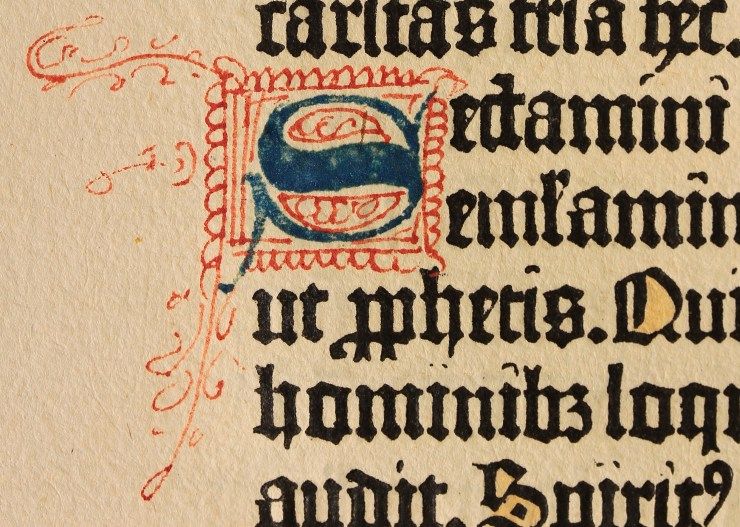 caritas tria hec.
Sectamini
emulamin
ut ꝓphetis. Qui
hominibꝫ loq
audit. Spiritꝰ